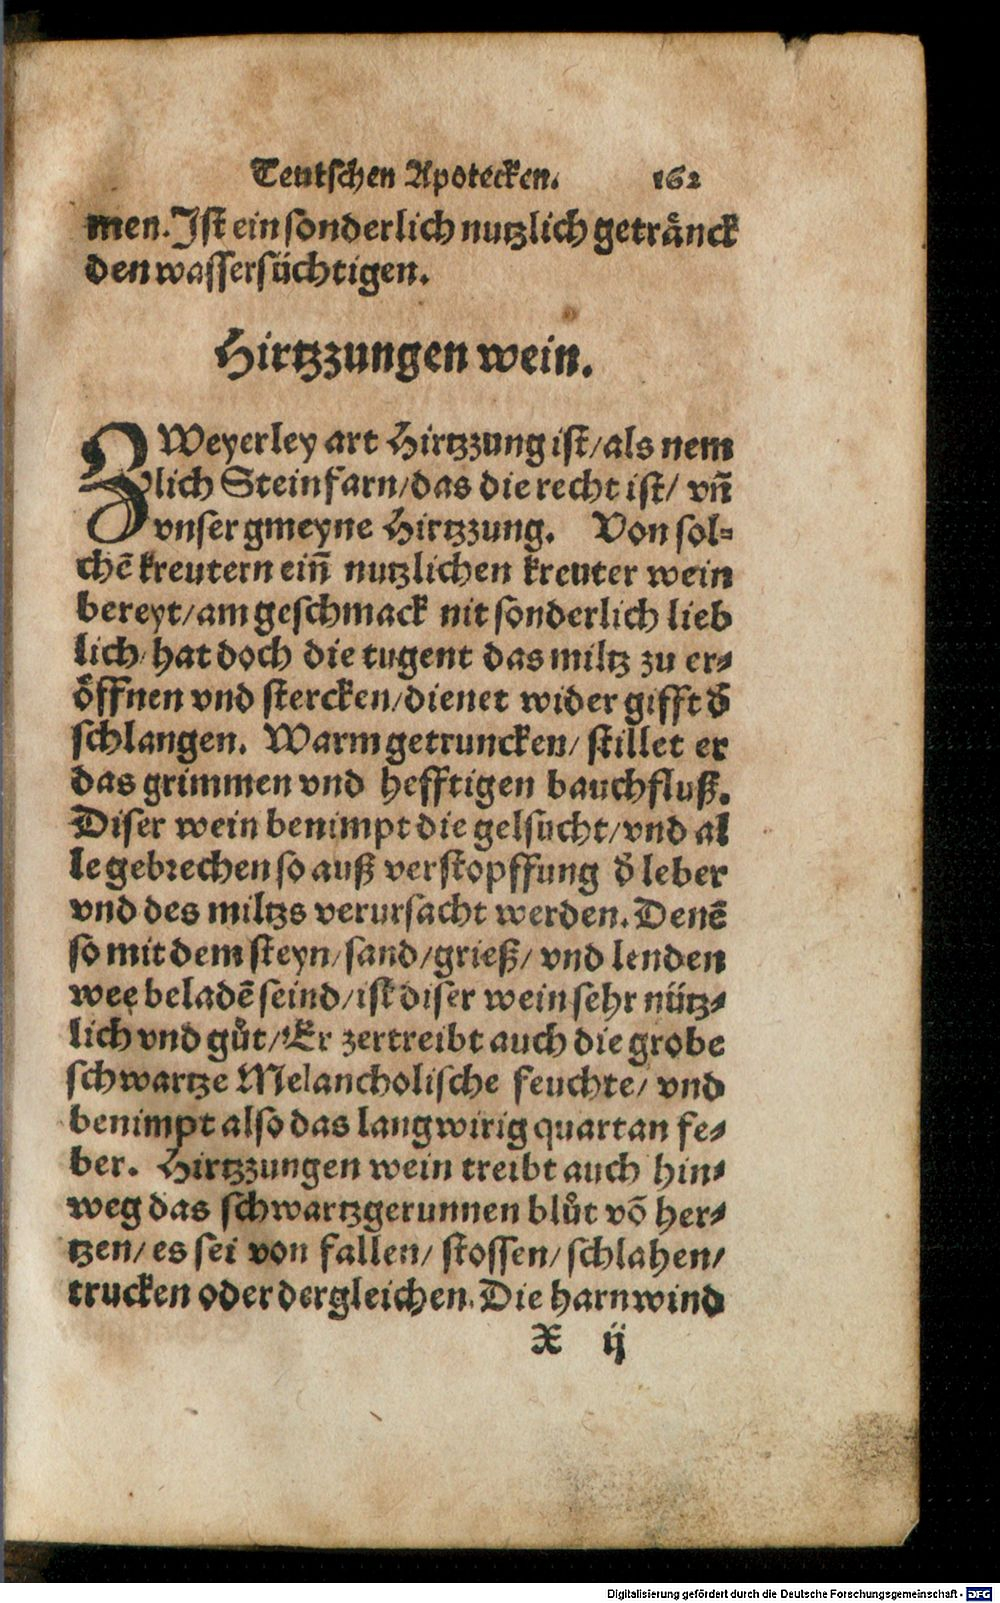 Teutschen Apotecken. 162
men. Ist ein sonderlich nutzlich getränck
den wassersüchtigen.
Hirtzzungen wein.
ZWeyerley art Hirtzzung ist/ als nem
lich Steinfarn/ das die recht ist/ vñ
vnser gmeyne Hirtzzung. Von sol=
chẽ kreutern eiñ nutzlichen kreuter wein
bereyt/ am geschmack nit sonderlich lieb
lich/ hat doch die tugent das miltz zu er=
öffnen vnd stercken/ dienet wider gifft d̄
schlangen. Warm getruncken/ stillet er
das grimmen vnd hefftigen bauchfluß.
Diser wein benimpt die gelsucht/ vnd al
le gebrechen so auß verstopffung d̄ leber
vnd des miltzs verursacht werden. Denẽ
so mit dem steyn/ sand/ grieß/ vnd lenden
wee beladẽ seind/ ist diser wein sehr nütz=
lich vnd gůt/ Er zertreibt auch die grobe
schwartze Melancholische feuchte/ vnd
benimpt also das langwirig quartan fe=
ber. Hirtzzungen wein treibt auch hin=
weg das schwartzgerunnen blůt võ her=
tzen/ es sei von fallen/ stossen/ schlahen/
trucken oder dergleichen. Die harnwind
X ij
Digitalisierung gefördert durch die Deutsche Forschungsgemeinschaft - DFG